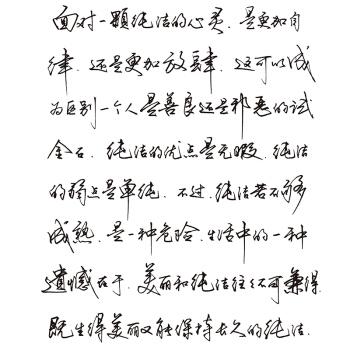 面对一颗纯洁的心灵，是更加自
律，还是更加放肆，这可以成
为区别一个人是善良还是邪恶的试
金石。纯洁的优点是无暇，纯洁
的弱点是单纯。不过，纯洁若不够
成熟，是一种危险，生活中的一种
遗憾在于，美丽和纯洁往往不可兼得，
既生得美丽又能保持长久的纯洁，